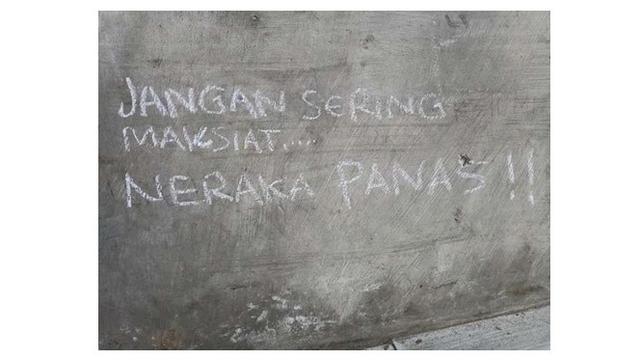 JANGAN SERING
MAKSIAT....
NERAKA PANAS !!